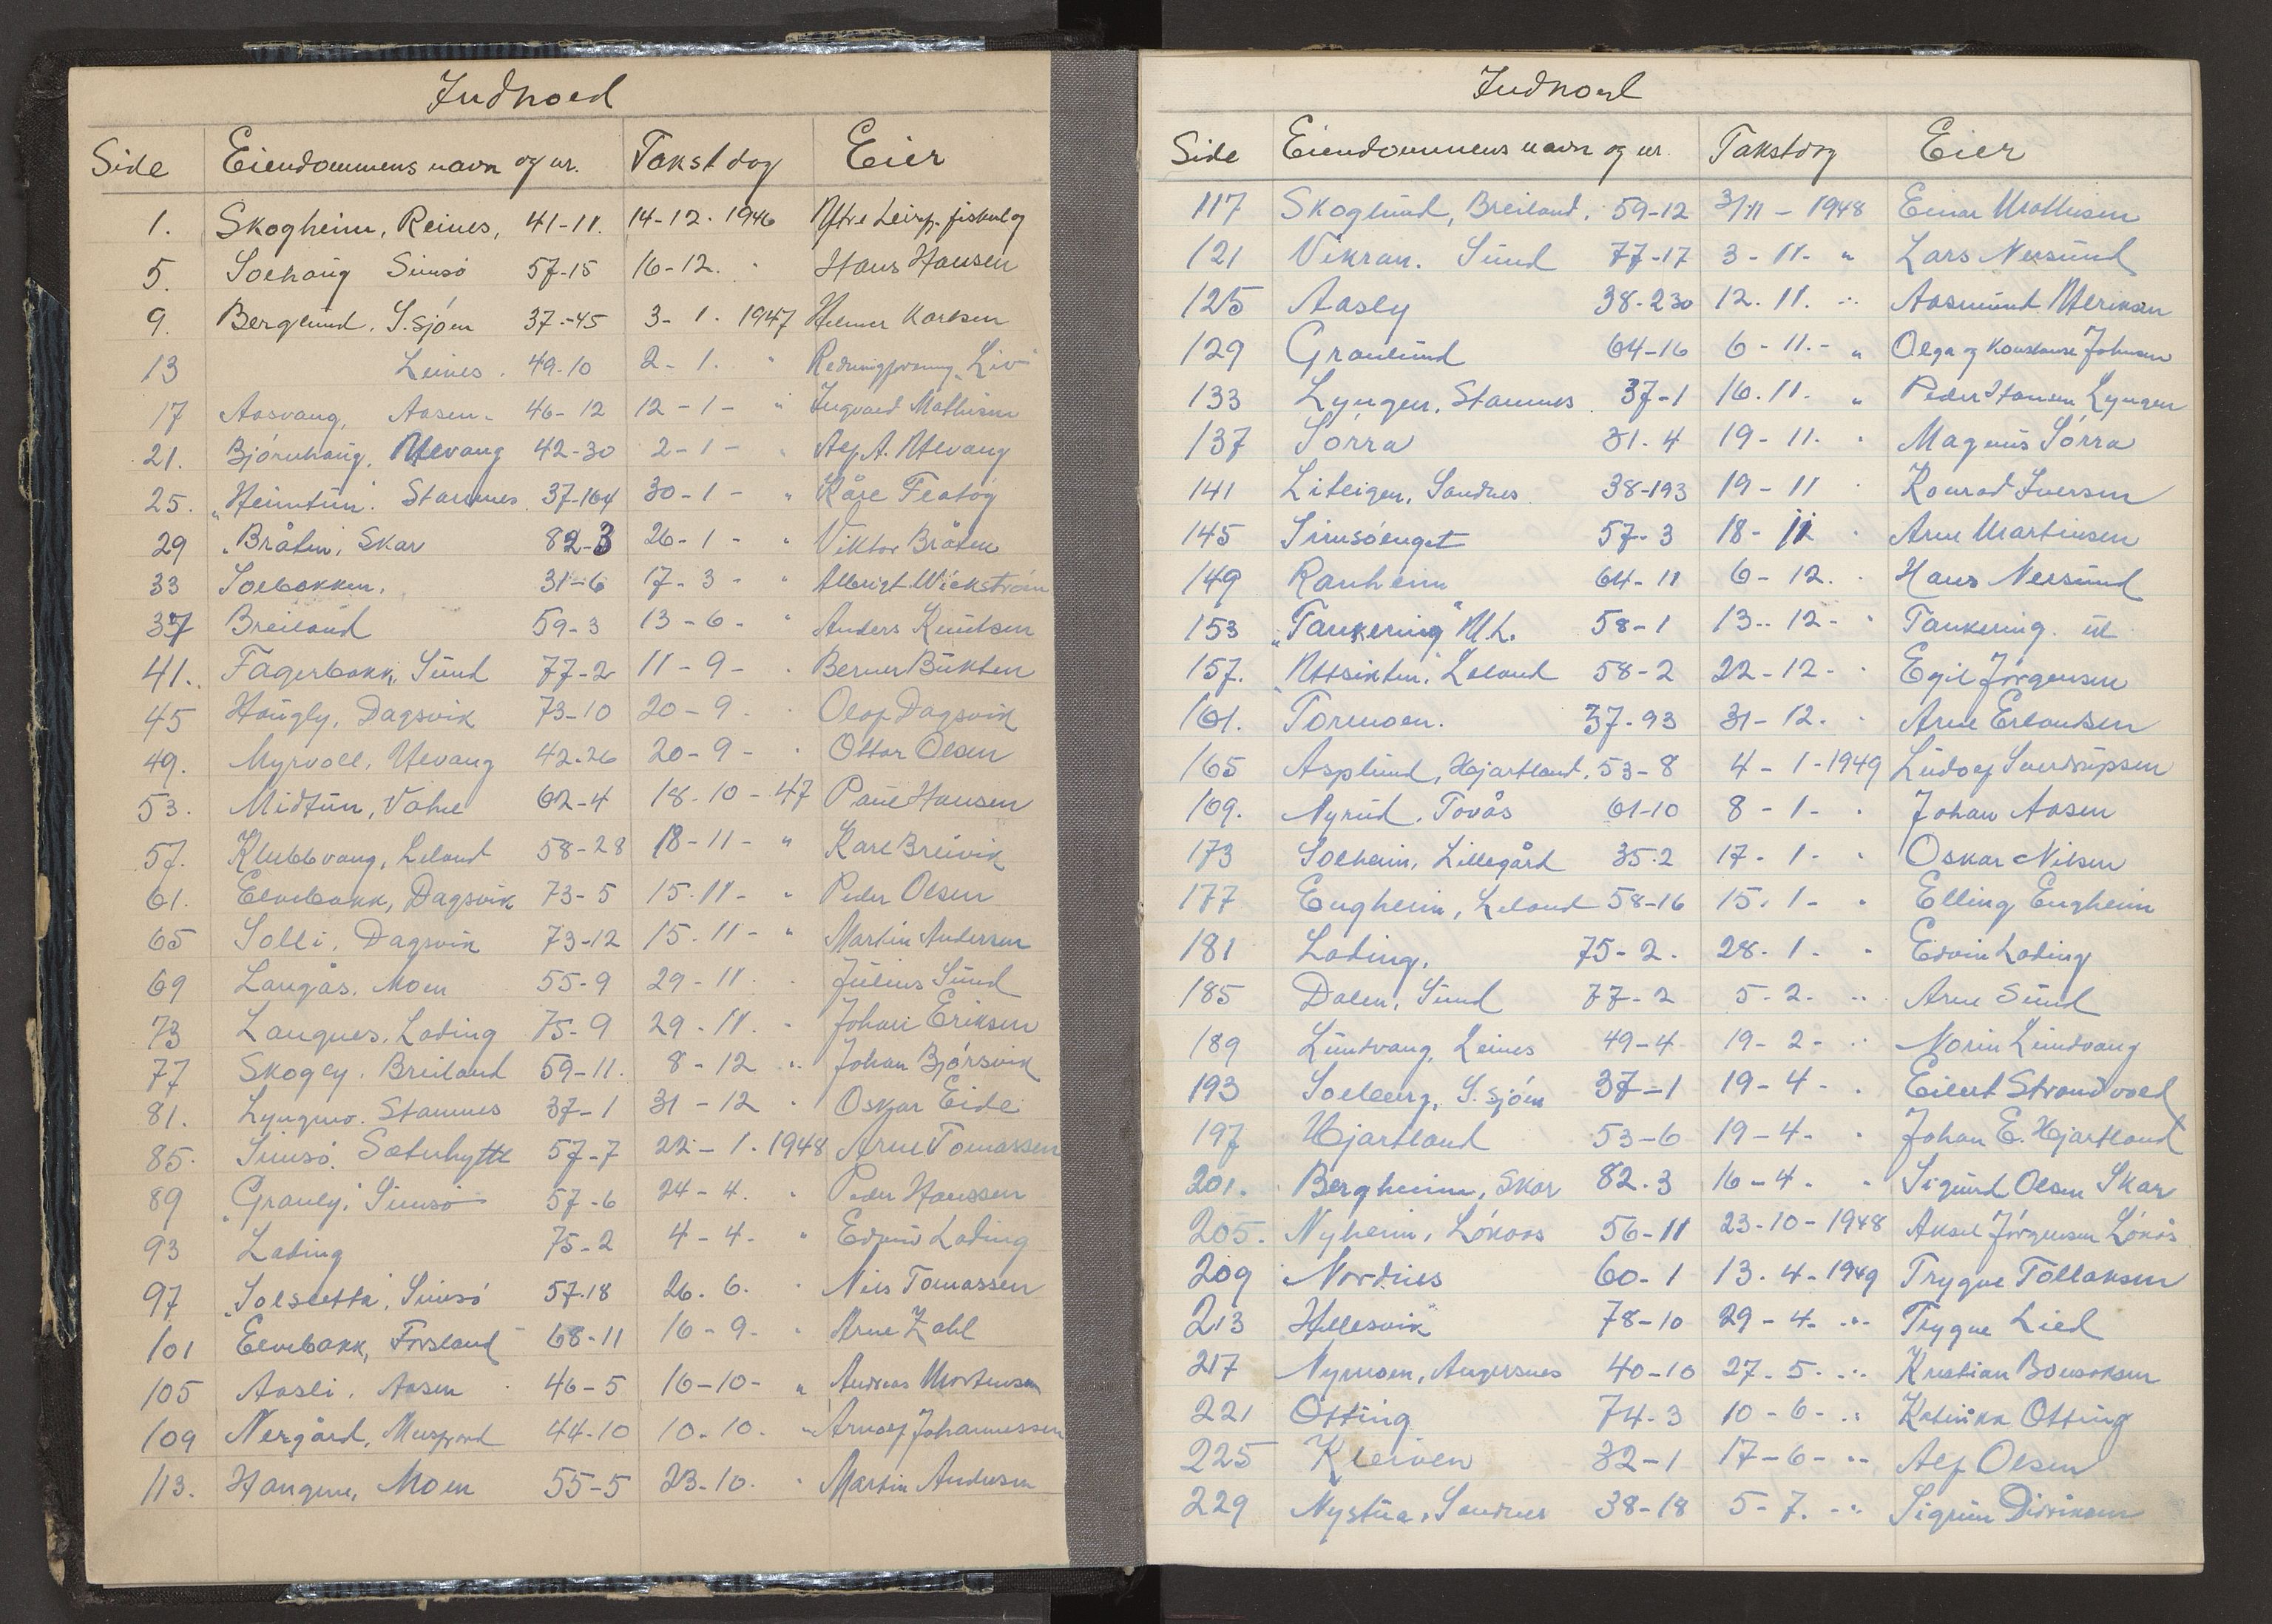 Indhold
Side Eiendommens navn og nr. Takstdag Eier
1. Skogheim, Reines, 41-11. 14-12. 1946 Ytre Leirfj. fiskelag
5. Solhaug Simsö 57-15 16-12. " Hans Hansen
9. Berglund. S.sjöen 37-45 3-1. 1947 Helmer Karlsen
13 Leines. 49-10 2-1. " Redningsforening "Liv"
17 Aasvang, Aasen- 46-12 12-1- " Ingvald Mathisen
21. Björnhaug, Ulvang 42-30 2-1- " Alf A. Ulvang
25. "Heimtun". Stamnes. 37-164 30-1- " Kåre Fløtög
29 "Bråten, Skar 82-3 26-1- " Viktor Bråten
33 Solbakken. 31-6 17-3- " Albrigt Wickström
37 Breiland 59-3 13-6- " Anders Knutsen
41. Fagerbakk, Sund 77-2 11-9- " Berner Bukten
45 Haugly, Dagsvik 73-10 20-9. " Olaf Dagsvik
49. Myrvoll, Ulvang 42-26 20-9- " Ottar Olsen
53. Midtun, Vahl 62-4 18-10-47 Paul Hansen
57. Klubbvang, Leland 58-28 18-11- " Karl Breivik
61. Elvebakk, Dagsvik 73-5 15-11- " Peder Olsen
65 Solli, Dagsvik 73-12 15.11- " Martin Andersen
69 Langås. Moen 55-9 29-11. " Julius Sund
73 Langnes. Lading 75-9 29-11. " Johan Eriksen
77 Skogly. Breiland 59-11. 8-12 " Johan Björsvik
81. Lyngmo. Stamnes 37-1 31-12 " Oskar Eide
85. Simsö. Sæterhytte 57-7 22-1. 1948 Arne Tomassen
89 "Granly". Simsö 57-6 24-4. " Peder Hanssen
93 Lading 75-2 4-4. " Edvin Lading
97 "Solsletta", Simsö 57-18 26.6. " Nils Tomassen
101 Elvebakk, Forsland 68-11 16-9. " Arne Zahl
105 Aasli. Aasen 46-5 16-10- " Andreas Mortensen
109 Nergård, Meisfjord 44-10 10.10. " Arnolf Johannessen
113. Haugen, Moen 55-5 23-10. " Martin Andersen
Indhold
Side Eiendommens navn og nr. Takstdag Eier
117 Skoglund, Breiland. 59-12 3/11-1948 Einar Mathisen
121 Vikran. Sund 77-17 3-11- " Lars Nersund
125 Aasly 38-230 12.11. " Aasmund Ulriksen
129 Granlund 64-16 6-11.- " Olga og Konstanse Johnsen
133 Lyngen, Stamnes 37-1 16.11. " Peder Hansen Lyngen
137 Sörra 31.4 19-11. " Magnus Sörra
141 Liteigen, Sandnes 38-193 19-11 " Konrad Iversen
145 Simsöenget 57-3 18-11 " Arne Martinsen
149 Ranheim 64-11 6-12. " Hans Nersund
153 "Tankering" U.L. 58-1 13-12- " Tankering. ul
157. "Uttsikten". Leland 58-2 22-12- " Egil Jörgensen
161. Toremoen. 37-93 31-12. " Arne Erlandsen
165 Asplund, Hjartland. 53-8 4-1-1949 Ludolf Sverdrupsen
169. Nyrud. Tovås 61-10 8-1- " Johan Aasen
173 Solheim, Lillegård 35.2 17-1- " Oskar Nilsen
177 Engheim, Leland 58-16 15.1- " Elling Engheim
181 Lading. 75-2. 28-1. " Edvin Lading
185 Dalen, Sund 77-2 5-2. " Arne Sund
189 Lundvang, Leines 49-4 19-2- " Norin Lundvang
193 Solberg, S.sjöen 37-1 19-4- " Eilert Strandvold
197 Hjartland 53-6 19-4- " Johan E. Hjartland
201. Bergheim, Skar 82.3 16-4. " Sigurd Olsen Skar
205. Nyheim, Lökaas 56-11 23-10-1948 Aksel Jörgensen Lökås
209 Nordnes 60-1 13.4-1949 Trygve Tollaksen
213 Hellesvik 78-10 29-4. " Trygve Lied
217 Nymoen, Angersnes 40-10 27-5. " Kristian Bendiksen
221 Otting 74-3 10-6- " Katinka Otting
225 Kleiven 32-1 17-6- " Alf Olsen
229 Nystua, Sandnes 38-18 5-7. " Sigrun Didriksen